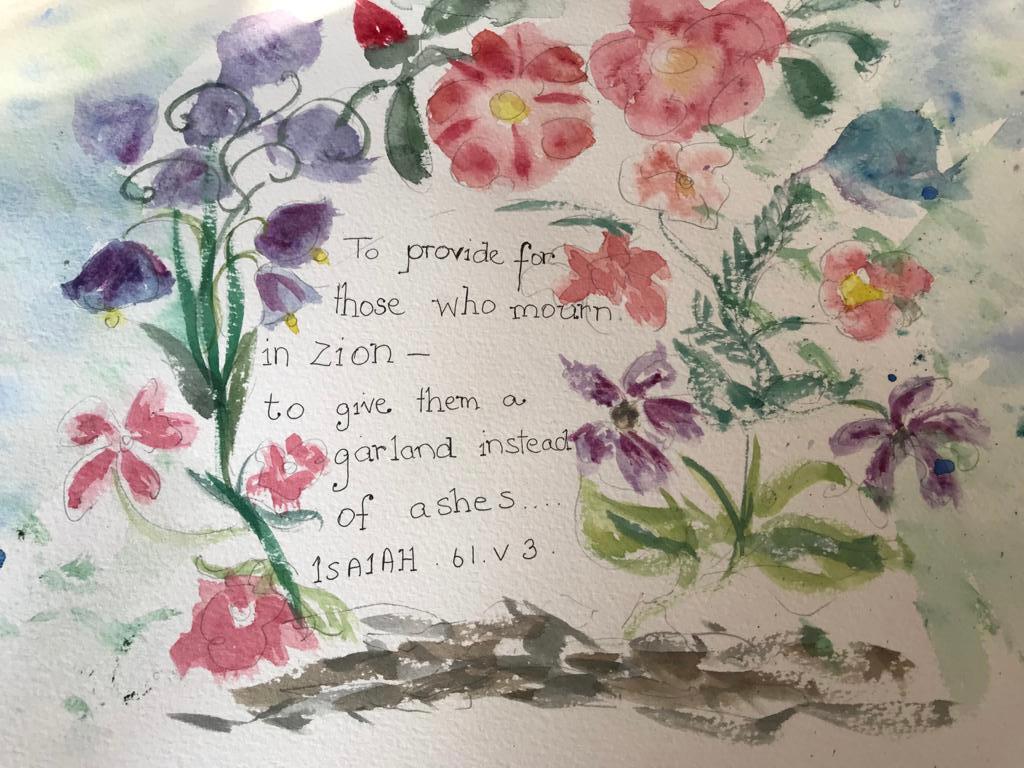 To provide for
those who mourn
in Zion —
to give them a
garland instead
of ashes....
ISAIAH . 61. v 3.